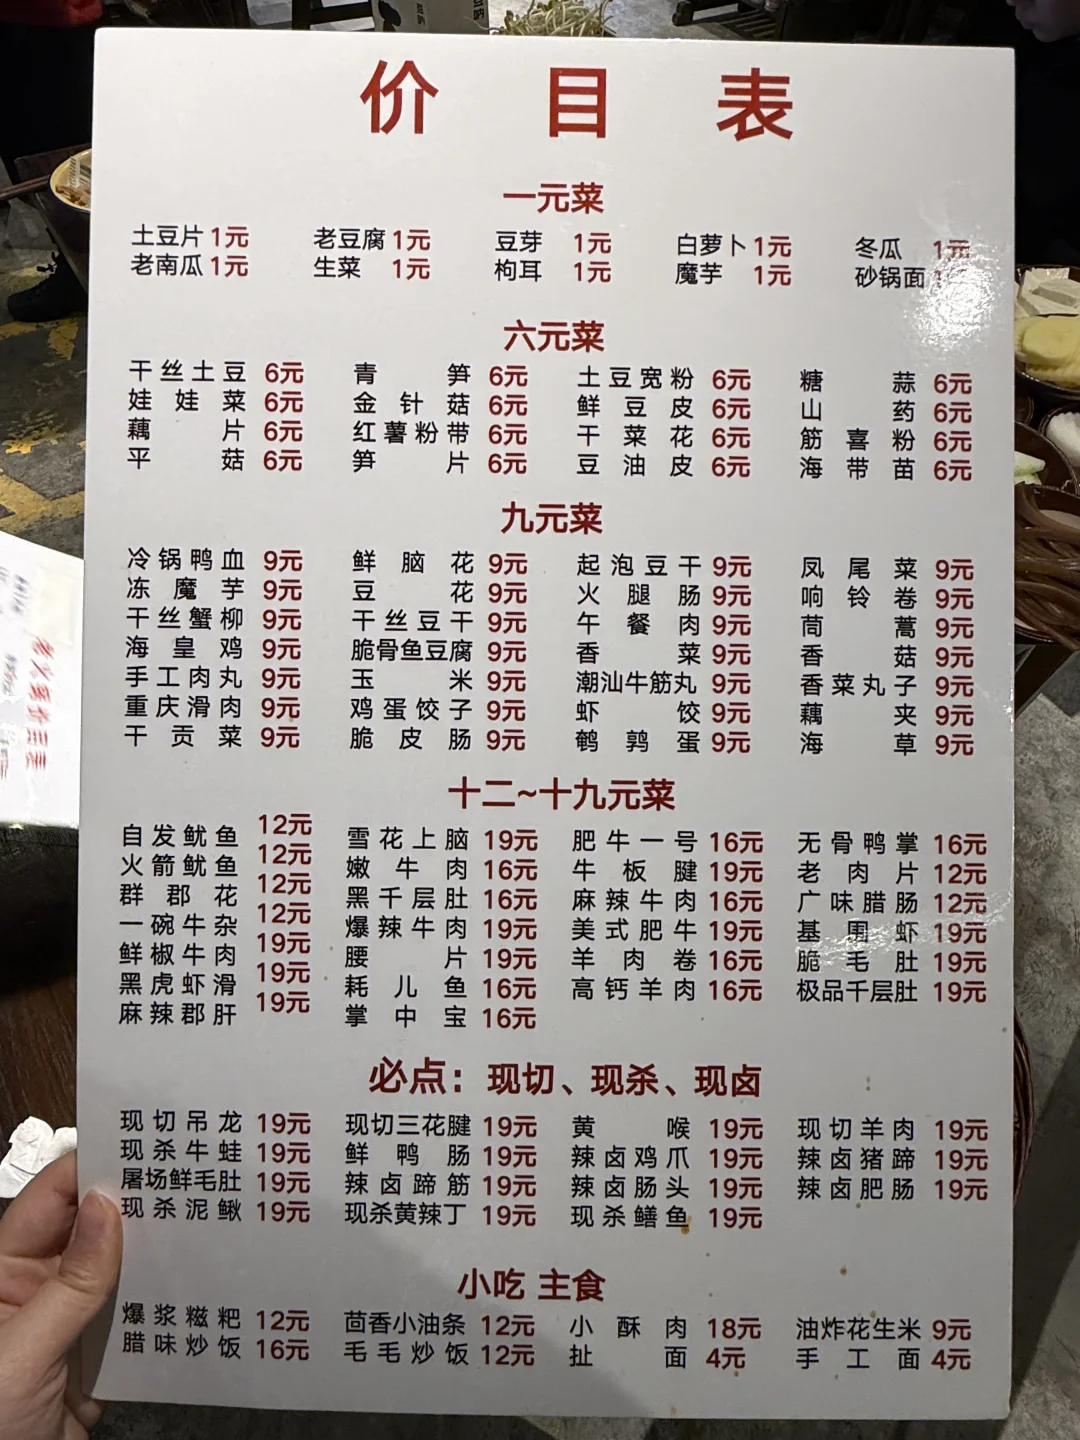 价目表
一元菜
土豆片 1元 老豆腐 1元 豆芽 1元 白萝卜 1元 冬瓜 1元
老南瓜 1元 生菜 1元 枸耳 1元 魔芋 1元 砂锅面
六元菜
干丝土豆 6元 青笋 6元 土豆宽粉 6元 糖蒜 6元
娃娃菜 6元 金针菇 6元 鲜豆皮 6元 山药 6元
藕片 6元 红薯粉带 6元 干菜花 6元 筋喜粉 6元
平菇 6元 笋片 6元 豆油皮 6元 海带苗 6元
九元菜
冷锅鸭血 9元 鲜脑花 9元 起泡豆干 9元 凤尾菜 9元
冻魔芋 9元 豆花 9元 火腿肠 9元 响铃卷 9元
干丝蟹柳 9元 干丝豆干 9元 午餐肉 9元 茼蒿 9元
海皇鸡 9元 脆骨鱼豆腐 9元 香菜 9元 香菇 9元
手工肉丸 9元 玉米 9元 潮汕牛筋丸 9元 香菜丸子 9元
重庆滑肉 9元 鸡蛋饺子 9元 虾饺 9元 藕夹 9元
干贡菜 9元 脆皮肠 9元 鹌鹑蛋 9元 海草 9元
十二~十九元菜
自发鱿鱼 12元 雪花上脑 19元 肥牛一号 16元 无骨鸭掌 16元
火箭鱿鱼 12元 嫩牛肉 16元 牛板腱 19元 老肉片 12元
群郡花 12元 黑千层肚 16元 麻辣牛肉 16元 广味腊肠 12元
一碗牛杂 12元 爆辣牛肉 19元 美式肥牛 19元 基围虾 19元
鲜椒牛肉 19元 腰片 19元 羊肉卷 16元 脆毛肚 19元
黑虎虾滑 19元 耗儿鱼 16元 高钙羊肉 16元 极品千层肚 19元
麻辣郡肝 19元 掌中宝 16元
必点：现切、现杀、现卤
现切吊龙 19元 现切三花腱 19元 黄喉 19元 现切羊肉 19元
现杀牛蛙 19元 鲜鸭肠 19元 辣卤鸡爪 19元 辣卤猪蹄 19元
屠场鲜毛肚 19元 辣卤蹄筋 19元 辣卤肠头 19元 辣卤肥肠 19元
现杀泥鳅 19元 现杀黄辣丁 19元 现杀鳝鱼 19元
小吃 主食
爆浆糍粑 12元 茴香小油条 12元 小酥肉 18元 油炸花生米 9元
腊味炒饭 16元 毛毛炒饭 12元 扯面 4元 手工面 4元